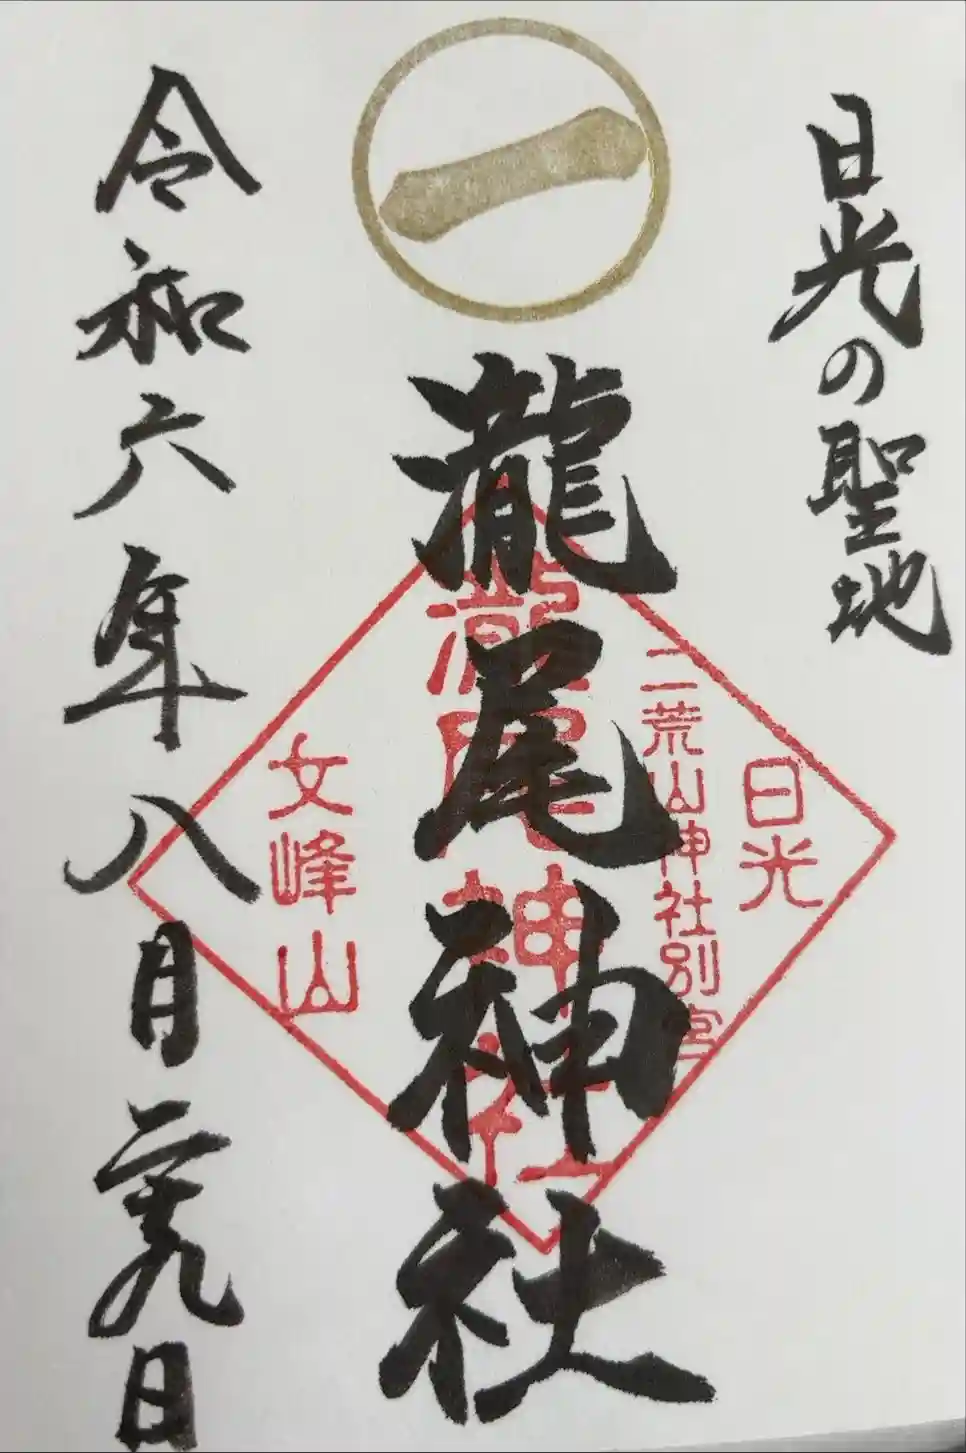 日光の聖地
一
瀧尾神社
令和六年八月二十九日
日光
二荒山神社別宮
瀧尾神社
女峰山